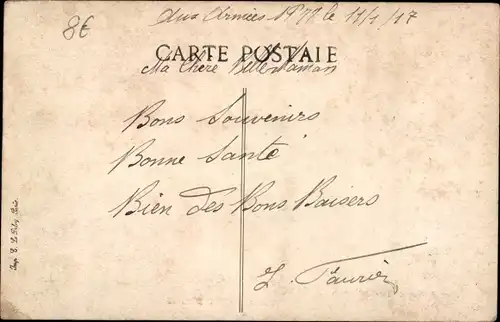 8€
Aux Armées le 11/1/17
CARTE POSTALE
Ma Chère Belle Maman
Bons Souvenirs
Bonne Santé
Bien des Bons Baisers
Imp. E. Le Deley, Paris